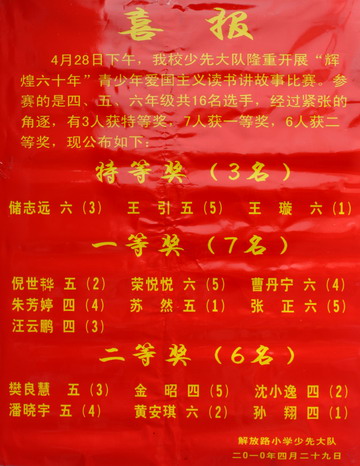 喜报
4月28日下午，我校少先大队隆重开展“辉
煌六十年”青少年爱国主义读书讲故事比赛。参
赛的是四、五、六年级共16名选手，经过紧张的
角逐，有3人获特等奖，7人获一等奖，6人获二
等奖，现公布如下：
特等奖（3名）
储志远 六（3） 王 引 五（5） 王 璇 六（1）
一等奖（7名）
倪世骅 五（2） 荣悦悦 六（5） 曹丹宁 六（4）
朱芳婷 四（4） 苏 然 五（1） 张 正 六（5）
汪云鹏 四（3）
二等奖（6名）
樊良慧 五（3） 金 昭 四（5） 沈小逸 四（2）
潘晓宇 五（4） 黄安琪 六（2） 孙 翔 四（1）
解放路小学少先大队
二○一○年四月二十九日